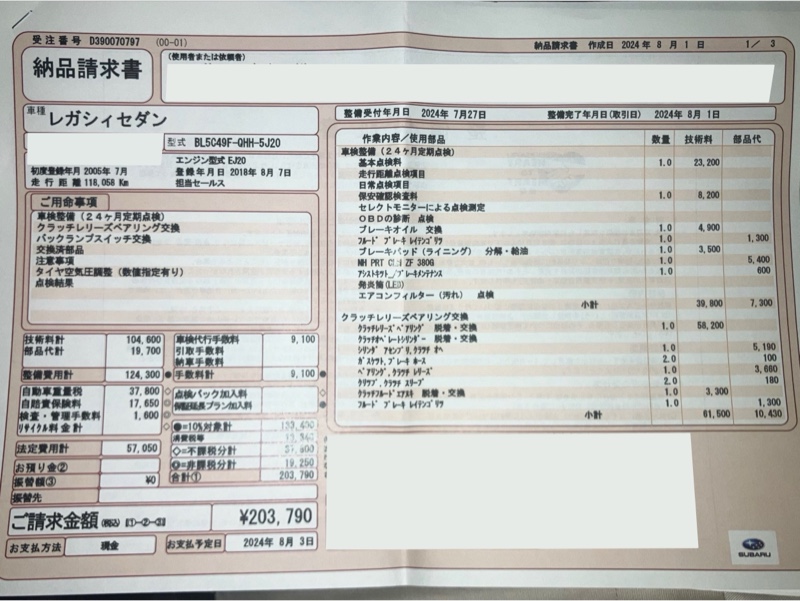 受注番号 D390070797 (00-01)
納品請求書 作成日 2024年 8月 1日 1/ 3
納品請求書
(使用者または依頼者)
車種
レガシィセダン
整備受付年月日 2024年 7月27日 整備完了年月日(取引日) 2024年 8月 1日
型式 BL5C49F-QHH-5J20
エンジン型式 EJ20
初度登録年月 2005年 7月 登録年月日 2018年 8月 7日
走行距離 118,058 Km 担当セールス
ご用命事項
車検整備(24ヶ月定期点検)
クラッチレリーズベアリング交換
バックランプスイッチ交換
交換済部品
注意事項
タイヤ空気圧調整(数値指定有り)
点検結果
作業内容/使用部品 数量 技術料 部品代
車検整備(24ヶ月定期点検)
基本点検料 1.0 23,200
走行距離点検項目
日常点検項目
保安確認検査料 1.0 8,200
セレクトモニターによる点検測定
OBDの診断 点検
ブレーキオイル 交換 1.0 4,900
フルード ブレーキ 1.0 1,300
ブレーキパッド(ライニング) 分解・給油 1.0 3,500
ZF 380G 1.0 5,400
1.0 600
発炎筒(LED)
エアコンフィルター(汚れ) 点検
小計 39,800 7,300
クラッチレリーズベアリング交換
クラッチレリーズベアリング 脱着・交換 1.0 58,200
クラッチオペレートシリンダー 脱着・交換
シリンダ アセンブリ,クラッチ オペ 1.0 5,190
ガスケット,ブレーキ ホース 2.0 100
ベアリング,クラッチ レリーズ 1.0 3,660
クリップ,クラッチ スリーブ 2.0 180
クラッチフルードエアヌキ 脱着・交換 1.0 3,300
フルード ブレーキ 1.0 1,300
小計 61,500 10,430
技術料計 104,600 車検代行手数料 9,100
部品代計 19,700 引取手数料
納車手数料
整備費用計 124,300 ● 手数料計 9,100 ●
自動車重量税 37,800 ◇ 点検パック加入料
自賠責保険料 17,650 ◎ 保証延長プラン加入料
検査・管理手数料 1,600
リサイクル料金計
●=10%対象計 133,400
消費税等
◇=不課税分計 37,800
◎=非課税分計 19,250
合計① 203,790
法定費用計 57,050
お預り金②
振替額③ ¥0
振替先
ご請求金額(税込)【①-②-③】 ¥203,790
お支払方法 現金 お支払予定日 2024年 8月 3日
SUBARU